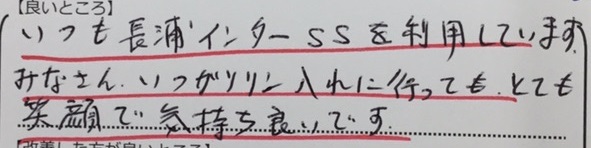 【良いところ】
いつも長浦インターSSを利用しています。
みなさん、いつガソリン入れに行っても、とても
笑顔で気持ち良いです
【改善した方が良いところ】